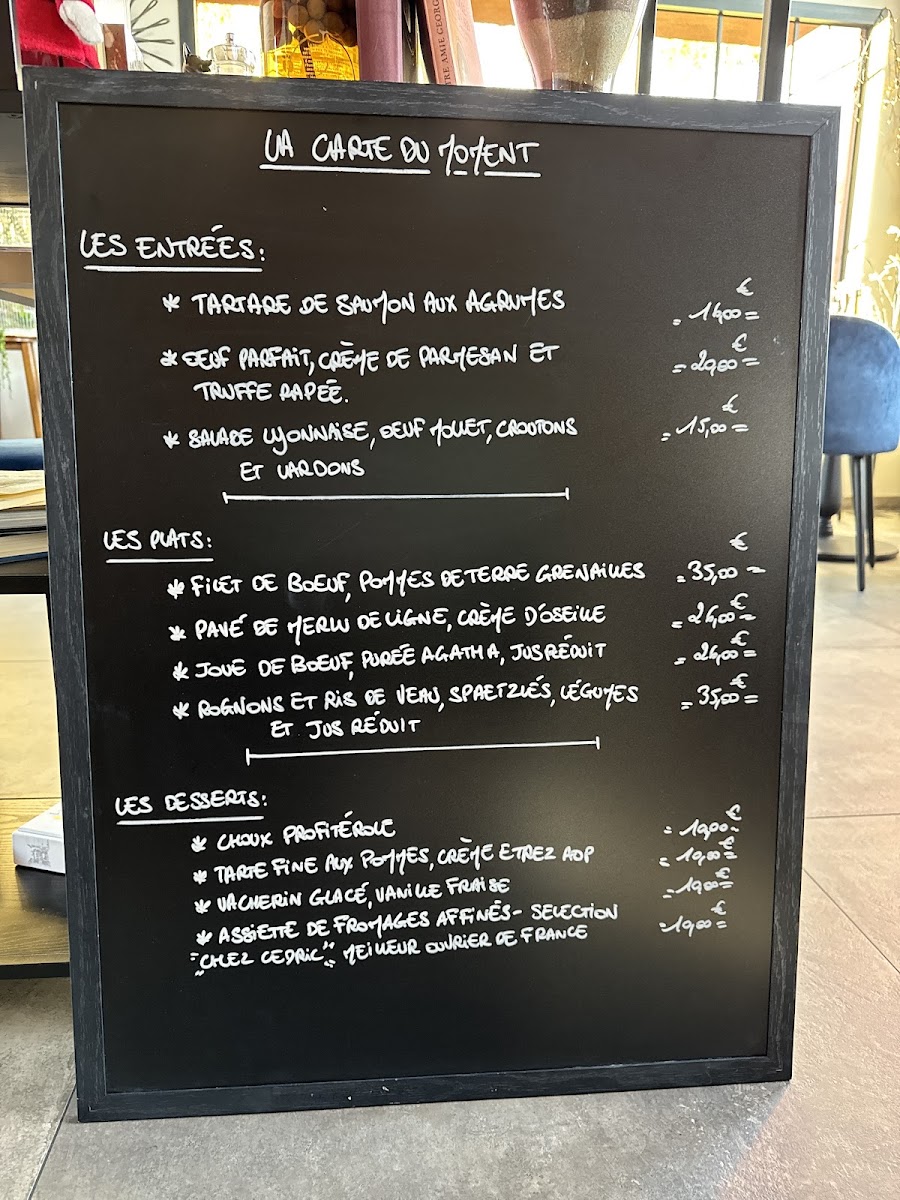 TRE AMIE GEORG
LA CARTE DU MOMENT
LES ENTRÉES:
* TARTARE DE SAUMON AUX AGRUMES = 14,00 € =
* OEUF PARFAIT, CRÈME DE PARMESAN ET = 20,00 € =
TRUFFE RAPÉE.
* SALADE LYONNAISE, OEUF MOLLET, CROUTONS = 15,00 € =
ET LARDONS
LES PLATS:
* FILET DE BOEUF, POMMES DE TERRE GRENAILLES = 35,00 € =
* PAVÉ DE MERLU DE LIGNE, CRÈME D'OSEILLE = 26,00 € =
* JOUE DE BOEUF, PURÉE AGATHA, JUS RÉDUIT = 26,00 € =
* ROGNONS ET RIS DE VEAU, SPAETZLÉS, LÉGUMES = 35,00 € =
ET JUS RÉDUIT
LES DESSERTS:
* CHOUX PROFITÉROLE = 10,00 € =
* TARTE FINE AUX POMMES, CRÈME ETREZ AOP = 10,00 € =
* VACHERIN GLACÉ, VANILLE FRAISE = 10,00 € =
* ASSIETTE DE FROMAGES AFFINÉS - SELECTION = 10,00 € =
"CHEZ CEDRIC" MEILLEUR OUVRIER DE FRANCE